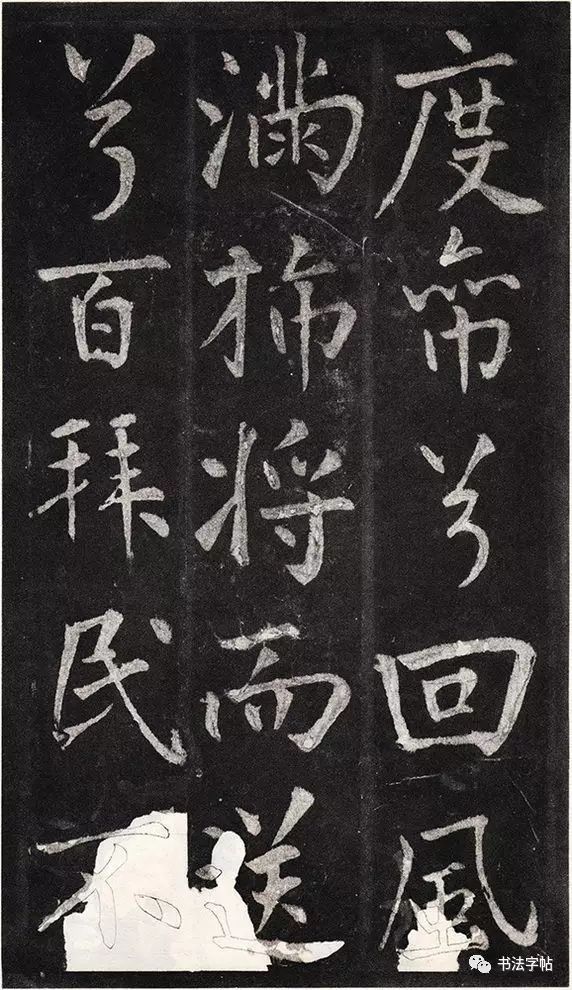 度兮回風
滿將而送
兮百拜民不
书法字帖